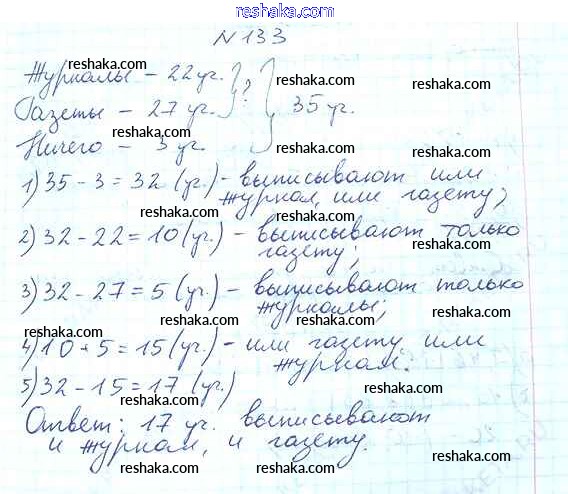 reshaka.com
N 133
reshaka.com
Журналы – 22 уч.
Газеты – 27 уч.
?
35 уч.
reshaka.com
reshaka.com
reshaka.com
Ничего – 3 уч.
reshaka.com
1) 35 - 3 = 32 (уч.) - выписывают или
журнал, или газету;
reshaka.com
reshaka.com
2) 32 - 22 = 10 (уч.) - выписывают только
газету;
reshaka.com
3) 32 - 27 = 5 (уч.) - выписывают только
журналы;
reshaka.com
reshaka.com
4) 10 + 5 = 15 (уч.) - или газету или
журнал.
reshaka.com
reshaka.com
5) 32 - 15 = 17 (уч.)
reshaka.com
Ответ: 17 уч. выписывают
и журнал, и газету.
reshaka.com
reshaka.com
reshaka.com